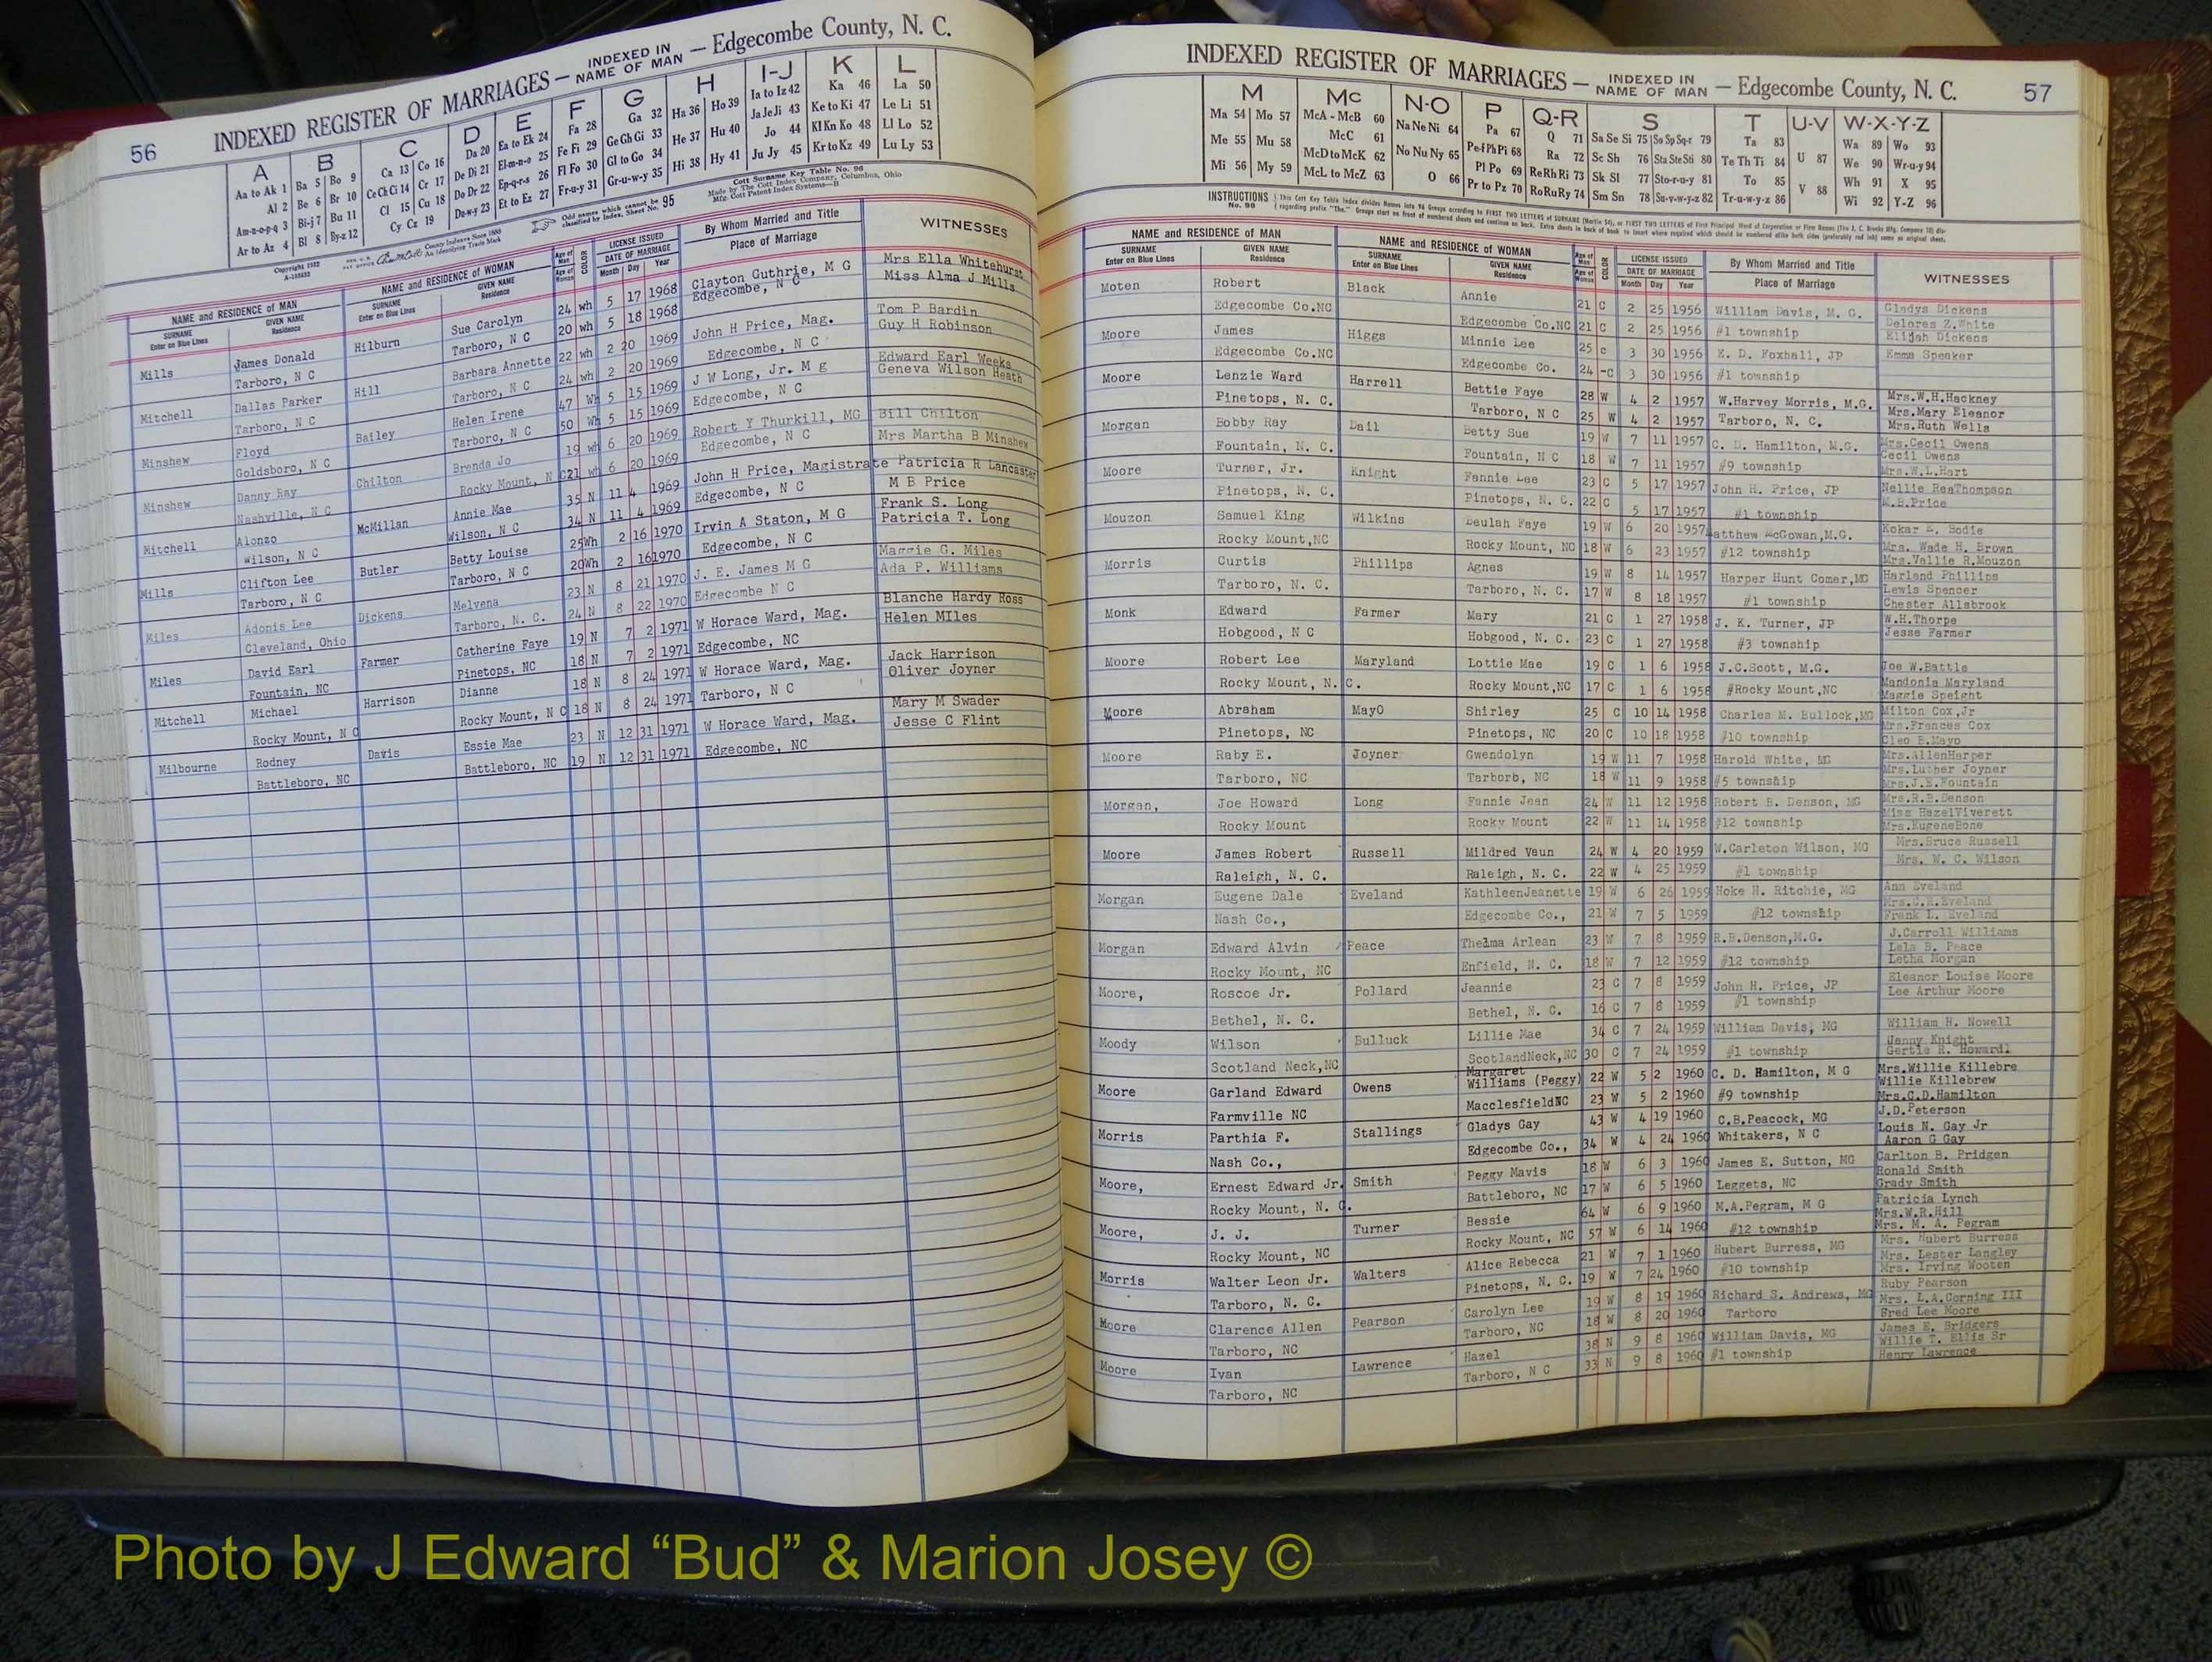 56
INDEXED REGISTER OF MARRIAGES — INDEXED IN NAME OF MAN — Edgecombe County, N. C.
A B C D E F G H I-J K L
Aa to Ak 1 Ba 5 Bo 9 Ca 13 Co 16 Da 20 Ea to Ek 24 Fa 28 Ga 32 Ha 36 Ho 39 Ia to Iz 42 Ka 46 La 50
Al 2 Be 6 Br 10 Ce Ch Ci 14 Cr 17 De Di 21 El-m-n-o 25 Fe Fi 29 Ge Gh Gi 33 He 37 Hu 40 Ja Je Ji 43 Ke to Ki 47 Le Li 51
Am-n-o-p-q 3 Bi-j 7 Bu 11 Cl 15 Cu 18 Do Dr 22 Ep-q-r-s 26 Fl Fo 30 Gl to Go 34 Hi 38 Hy 41 Jo 44 Kl Kn Ko 48 Ll Lo 52
Ar to Az 4 Bl 8 By-z 12 Cy Cz 19 De-w-y 23 Et to Ez 27 Fr-u-y 31 Gr-u-w-y 35 Ju Jy 45 Kr to Kz 49 Lu Ly 53
Odd names which cannot be classified in Index, Sheet No. 95
Cott Surname Key Table No. 96
Made by The Cott Index Company, Columbus, Ohio
Mfg. Cott Patent Index Systems—B
Copyright 1932
County Indexes Since 1888
An Identifying Trade Mark
NAME and RESIDENCE OF MAN NAME and RESIDENCE OF WOMAN Age of Man COLOR LICENSE ISSUED By Whom Married and Title WITNESSES
SURNAME GIVEN NAME SURNAME GIVEN NAME Age of Woman DATE OF MARRIAGE Place of Marriage
Enter on Blue Lines Residence Enter on Blue Lines Residence Month Day Year
Mills James Donald Hilburn Sue Carolyn 24 wh 5 17 1968 Clayton Guthrie, M G Mrs Ella Whitehurst
Tarboro, N C Tarboro, N C 20 wh 5 18 1968 Edgecombe, N C Miss Alma J Mills
Mitchell Dallas Parker Hill Barbara Annette 22 wh 2 20 1969 John H Price, Mag. Tom P Bardin
Tarboro, N C Tarboro, N C 24 wh 2 20 1969 Edgecombe, N C Guy H Robinson
Minshew Floyd Bailey Helen Irene 47 Wh 5 15 1969 J W Long, Jr. M g Edward Earl Weeks
Goldsboro, N C Tarboro, N C 50 Wh 5 15 1969 Edgecombe, N C Geneva Wilson Heath
Minshew Danny Ray Chilton Brenda Jo 19 wh 6 20 1969 Robert Y Thurkill, MG Bill Chilton
Nashville, N C Rocky Mount, N C 21 wh 6 20 1969 Edgecombe, N C Mrs Martha B Minshew
Mitchell Alonzo McMillan Annie Mae 35 N 11 4 1969 John H Price, Magistrate Patricia R Lancaster
Wilson, N C Wilson, N C 34 N 11 4 1969 Edgecombe, N C M B Price
Mills Clifton Lee Butler Betty Louise 25 Wh 2 16 1970 Irvin A Staton, M G Frank S. Long
Tarboro, N C Tarboro, N C 20 Wh 2 16 1970 Edgecombe, N C Patricia T. Long
Miles Adonis Lee Dickens Melvena 23 N 8 21 1970 J. E. James M G Maggie G. Miles
Cleveland, Ohio Tarboro, N. C. 24 N 8 22 1970 Edgecombe N C Ada P. Williams
Miles David Earl Farmer Catherine Faye 19 N 7 2 1971 W Horace Ward, Mag. Blanche Hardy Ross
Fountain, NC Pinetops, NC 18 N 7 2 1971 Edgecombe, NC Helen MIles
Mitchell Michael Harrison Dianne 18 N 8 24 1971 W Horace Ward, Mag. Jack Harrison
Rocky Mount, N C Rocky Mount, N C 18 N 8 24 1971 Tarboro, N C Oliver Joyner
Milbourne Rodney Davis Essie Mae 23 N 12 31 1971 W Horace Ward, Mag. Mary M Swader
Battleboro, NC Battleboro, NC 19 N 12 31 1971 Edgecombe, NC Jesse C Flint
INDEXED REGISTER OF MARRIAGES — INDEXED IN NAME OF MAN — Edgecombe County, N. C. 57
M Mc N-O P Q-R S T U-V W-X-Y-Z
Ma 54 Mo 57 McA - McB 60 Na Ne Ni 64 Pa 67 Q 71 Sa Se Si 75 So Sp Sq-r 79 Ta 83 U 87 Wa 89 Wo 93
Me 55 Mu 58 McC 61 No Nu Ny 65 Pe-f Ph Pi 68 Ra 72 Sc Sh 76 Sta Ste Sti 80 Te Th Ti 84 V 88 We 90 Wr-u-y 94
Mi 56 My 59 McD to McK 62 O 66 Pl Po 69 Re Rh Ri 73 Sk Sl 77 Sto-r-u-y 81 To 85 Wh 91 X 95
McL to McZ 63 Pr to Pz 70 Ro Ru Ry 74 Sm Sn 78 Su-v-w-y-z 82 Tr-u-w-y-z 86 Wi 92 Y-Z 96
INSTRUCTIONS
NAME and RESIDENCE OF MAN NAME and RESIDENCE OF WOMAN Age of Man COLOR LICENSE ISSUED By Whom Married and Title WITNESSES
SURNAME GIVEN NAME SURNAME GIVEN NAME Age of Woman DATE OF MARRIAGE Place of Marriage
Enter on Blue Lines Residence Enter on Blue Lines Residence Month Day Year
Moten Robert Black Annie 21 C 2 25 1956 William Davis, M. G. Gladys Dickens
Edgecombe Co.NC Edgecombe Co.NC 21 C 2 25 1956 #1 township Delores Z.White
Elijah Dickens
Moore James Higgs Minnie Lee 25 c 3 30 1956 E. D. Foxhall, JP Emma Speaker
Edgecombe Co.NC Edgecombe Co. 24 -C 3 30 1956 #1 township
Moore Lenzie Ward Harrell Bettie Faye 28 W 4 2 1957 W.Harvey Morris, M.G. Mrs.W.H.Hackney
Pinetops, N. C. Tarboro, N C 25 W 4 2 1957 Tarboro, N. C. Mrs.Mary Eleanor
Mrs.Ruth Wells
Morgan Bobby Ray Dail Betty Sue 19 W 7 11 1957 C. D. Hamilton, M.G. Mrs.Cecil Owens
Fountain, N. C. Fountain, N C 18 W 7 11 1957 #9 township Cecil Owens
Mrs.W.L.Hart
Moore Turner, Jr. Knight Fannie Lee 23 C 5 17 1957 John H. Price, JP Nellie ReaThompson
Pinetops, N. C. Pinetops, N. C. 22 C 5 17 1957 #1 township M.B.Price
Mouzon Samuel King Wilkins Beulah Faye 19 W 6 20 1957 atthew McGowan,M.G. Kokar E. Bodie
Rocky Mount,NC Rocky Mount, NC 18 W 6 23 1957 #12 township Mrs. Wade H. Brown
Mrs.Vallie R.Mouzon
Morris Curtis Phillips Agnes 19 W 8 14 1957 Harper Hunt Comer,MG Harland Phillips
Tarboro, N. C. Tarboro, N. C. 17 W 8 18 1957 #1 township Lewis Spencer
Chester Allsbrook
Monk Edward Farmer Mary 21 C 1 27 1958 J. K. Turner, JP W.H.Thorpe
Hobgood, N C Hobgood, N. C. 23 C 1 27 1958 #3 township Jesse Farmer
Moore Robert Lee Maryland Lottie Mae 19 C 1 6 1958 J.C.Scott, M.G. Joe W.Battle
Rocky Mount, N. C. Rocky Mount,NC 17 C 1 6 1958 #Rocky Mount,NC Mandonia Maryland
Maggie Speight
Moore Abraham MayO Shirley 25 C 10 14 1958 Charles M. Bullock,MG Milton Cox,Jr
Pinetops, NC Pinetops, NC 20 C 10 18 1958 #10 township Mrs.Frances Cox
Cleo B.Mayo
Moore Raby E. Joyner Gwendolyn 19 W 11 7 1958 Harold White, MG Mrs.AllenHarper
Tarboro, NC Tarborb, NC 18 W 11 9 1958 #5 township Mrs.Luther Joyner
Mrs.J.E.Fountain
Morgan, Joe Howard Long Fannie Jean 24 W 11 12 1958 Robert B. Denson, MG Mrs.R.B.Denson
Rocky Mount Rocky Mount 22 W 11 14 1958 #12 township Miss HazelViverett
Mrs.EugeneBone
Moore James Robert Russell Mildred Vaun 24 W 4 20 1959 W.Carleton Wilson, MG Mrs.Bruce Russell
Raleigh, N. C. Raleigh, N. C. 22 W 4 25 1959 #1 township Mrs. W. C. Wilson
Morgan Eugene Dale Eveland KathleenJeanette 19 W 6 26 1959 Hoke H. Ritchie, MG Ann Eveland
Nash Co., Edgecombe Co., 21 W 7 5 1959 #12 township Mrs.C.R.Eveland
Frank L. Eveland
Morgan Edward Alvin Peace Thelma Arlean 23 W 7 8 1959 R.B.Denson,M.G. J.Carroll Williams
Rocky Mount, NC Enfield, N. C. 18 W 7 12 1959 #12 township Lela B. Peace
Letha Morgan
Moore, Roscoe Jr. Pollard Jeannie 23 C 7 8 1959 John H. Price, JP Eleanor Louise Moore
Bethel, N. C. Bethel, N. C. 16 C 7 8 1959 #1 township Lee Arthur Moore
Moody Wilson Bulluck Lillie Mae 34 C 7 24 1959 William Davis, MG William H. Nowell
Scotland Neck,NC ScotlandNeck,NC 30 C 7 24 1959 #1 township Jenny Knight
Gertie R. Howardl
Moore Garland Edward Owens Margaret Williams (Peggy) 22 W 5 2 1960 C. D. Hamilton, M G Mrs.Willie Killebre
Farmville NC MacclesfieldNC 23 W 5 2 1960 #9 township Willie Killebrew
Mrs.C.D.Hamilton
Morris Parthia F. Stallings Gladys Gay 43 W 4 19 1960 C.B.Peacock, MG J.D.Peterson
Nash Co., Edgecombe Co., 34 W 4 24 1960 Whitakers, N C Louis N. Gay Jr
Aaron G Gay
Moore, Ernest Edward Jr. Smith Peggy Mavis 18 W 6 3 1960 James E. Sutton, MG Carlton B. Pridgen
Rocky Mount, N. C. Battleboro, NC 17 W 6 5 1960 Leggets, NC Ronald Smith
Grady Smith
Moore, J. J. Turner Bessie 64 W 6 9 1960 M.A.Pegram, M G Patricia Lynch
Rocky Mount, NC Rocky Mount, NC 57 W 6 14 1960 #12 township Mrs.W.R.Hill
Mrs. M. A. Pegram
Morris Walter Leon Jr. Walters Alice Rebecca 21 W 7 1 1960 Hubert Burress, MG Mrs. Hubert Burress
Tarboro, N. C. Pinetops, N. C. 19 W 7 24 1960 #10 township Mrs. Lester Langley
Mrs. Irving Wooten
Moore Clarence Allen Pearson Carolyn Lee 19 W 8 19 1960 Richard S. Andrews, MG Ruby Pearson
Tarboro, NC Tarboro, NC 18 W 8 20 1960 Tarboro Mrs. L.A.Corning III
Fred Lee Moore
Moore Ivan Lawrence Hazel 38 N 9 8 1960 William Davis, MG James E. Bridgers
Tarboro, NC Tarboro, N C 33 N 9 8 1960 #1 township Willie T. Ellis Sr
Henry Lawrence
Photo by J Edward “Bud” & Marion Josey ©